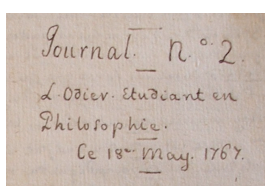 Journal. N.º 2.
L. Odier. Etudiant en
Philosophie.
Ce 18e May. 1767.